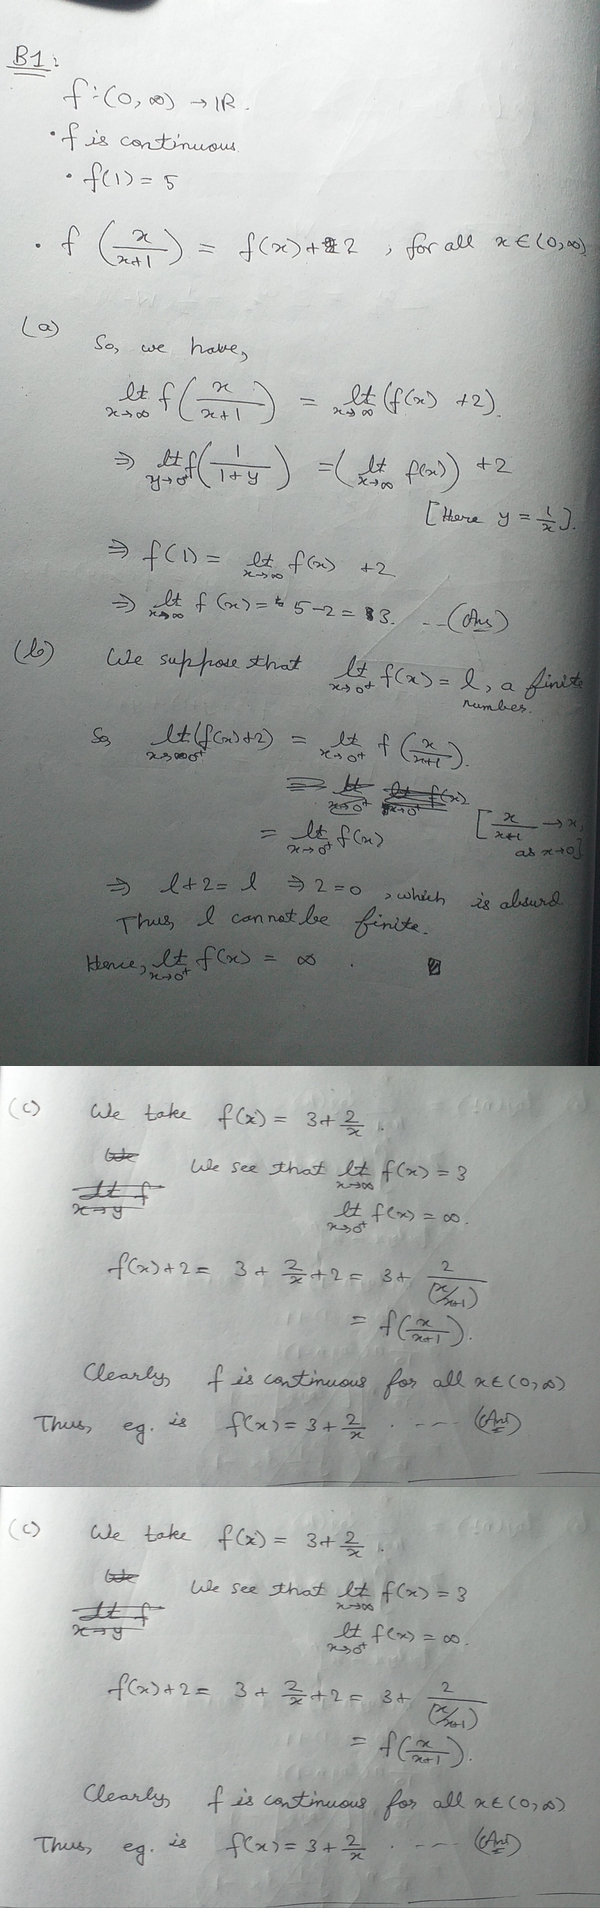 B1:
f:(0, ∞) → IR.
• f is continuous
• f(1) = 5
• f (x/(x+1)) = f(x)+2 , for all x ∈ (0,∞)
(a)
So, we have,
lt x→∞ f(x/(x+1)) = lt x→∞ (f(x) +2).
⇒ lt y→0⁺ f(1/(1+y)) = (lt x→∞ f(x)) +2
[Here y = 1/x].
⇒ f(1) = lt x→∞ f(x) +2
⇒ lt x→∞ f(x) = 5-2 = 3. ...(Ans)
(b) We suppose that lt x→0⁺ f(x) = l, a finite
number.
So, lt x→0⁺ (f(x)+2) = lt x→0⁺ f(x/(x+1)).
= lt x→0⁺ f(x) [x/(x+1) → x,
as x→0]
⇒ l+2 = l ⇒ 2=0 , which is absurd
Thus, l cannot be finite.
Hence, lt x→0⁺ f(x) = ∞ .
(c) We take f(x) = 3+2/x .
We see that lt x→∞ f(x) = 3
lt x→0⁺ f(x) = ∞.
f(x)+2 = 3 + 2/x + 2 = 3 + 2/(x/(x+1))
= f(x/(x+1)).
Clearly, f is continuous for all x ∈ (0,∞)
Thus, eg. is f(x) = 3+2/x . ---- (Ans)
(c) We take f(x) = 3+2/x .
We see that lt x→∞ f(x) = 3
lt x→0⁺ f(x) = ∞.
f(x)+2 = 3 + 2/x + 2 = 3 + 2/(x/(x+1))
= f(x/(x+1)).
Clearly, f is continuous for all x ∈ (0,∞)
Thus, eg. is f(x) = 3+2/x . ---- (Ans)